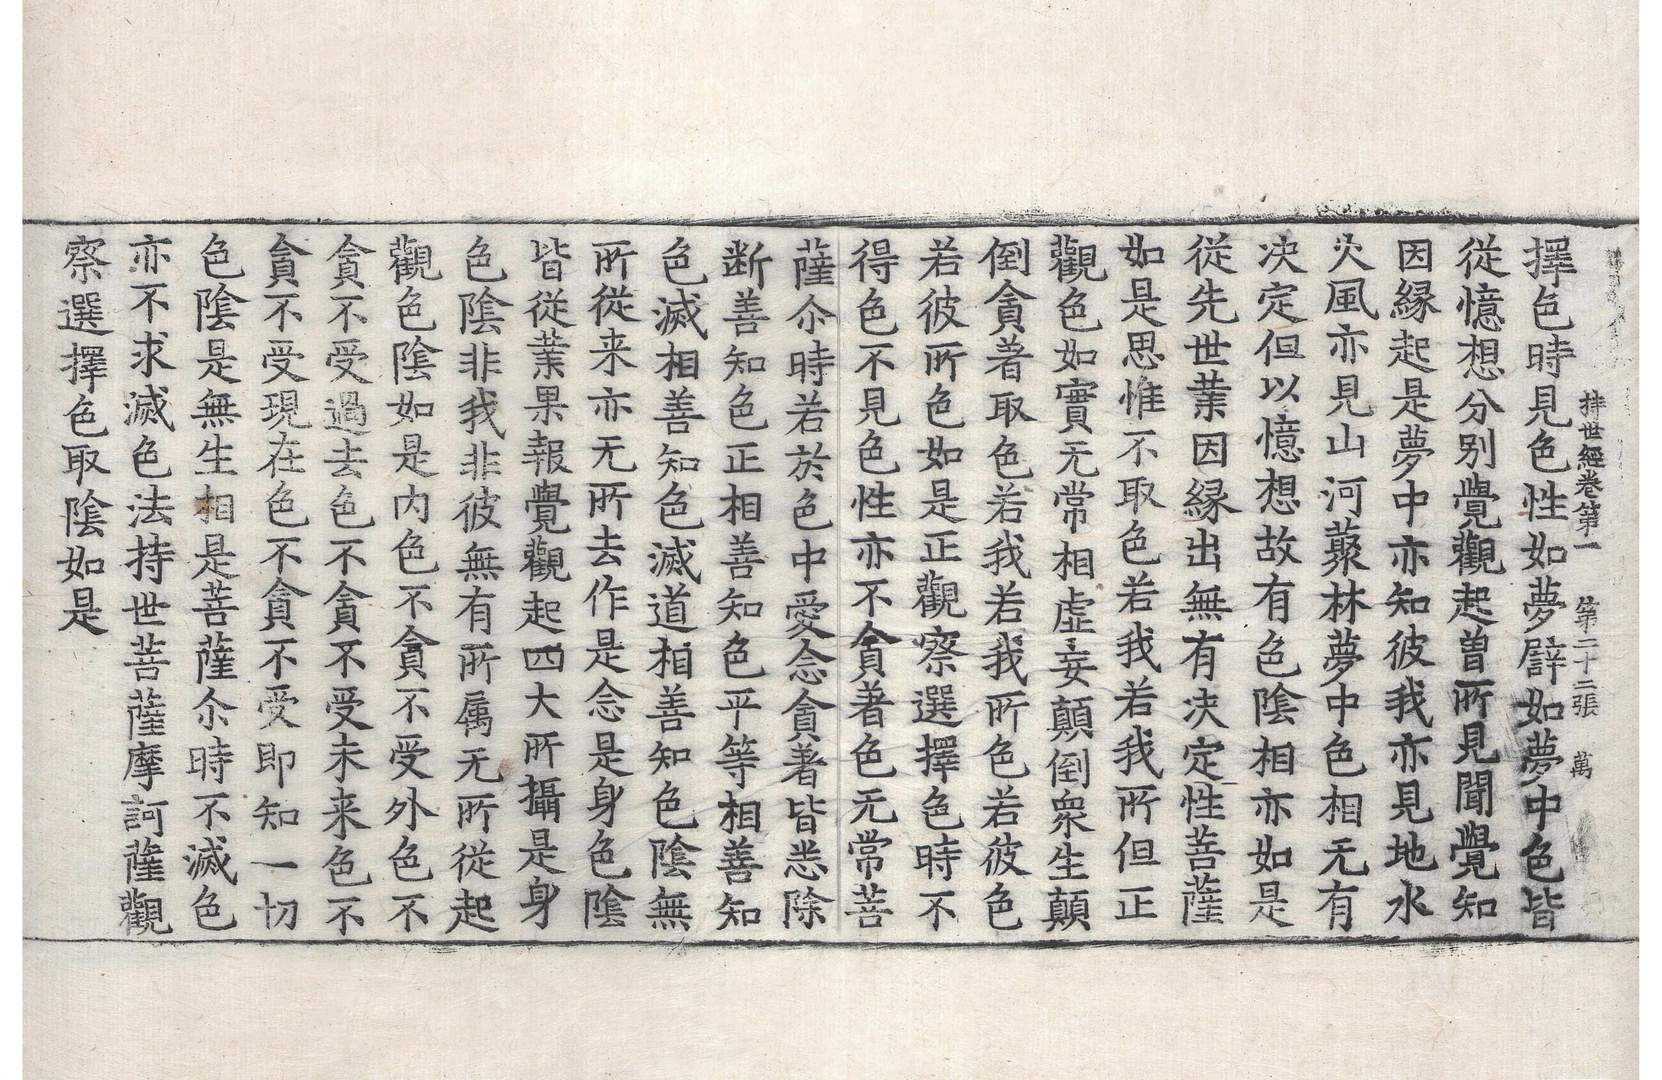 持世經卷第一 第二十二張 萬
擇色時見色性如夢譬如夢中色皆
從憶想分別覺觀起曽所見聞覺知
因縁起是夢中亦知彼我亦見地水
火風亦見山河藂林夢中色相无有
决定但以憶想故有色陰相亦如是
從先世業因縁出無有决定性菩薩
如是思惟不取色若我若我所但正
觀色如實无常相虛妄顛倒衆生顛
倒貪著取色若我若我所色若彼色
若彼所色如是正觀察選擇色時不
得色不見色性亦不貪著色无常菩
薩尒時若於色中愛念貪著皆悉除
断善知色正相善知色平等相善知
色滅相善知色滅道相善知色陰無
所從来亦无所去作是念是身色陰
皆從業果報覺觀起四大所攝是身
色陰非我非彼無有所属无所從起
觀色陰如是内色不貪不受外色不
貪不受過去色不貪不受未来色不
貪不受現在色不貪不受即知一切
色陰是無生相是菩薩尒時不滅色
亦不求滅色法持世菩薩摩訶薩觀
察選擇色取陰如是